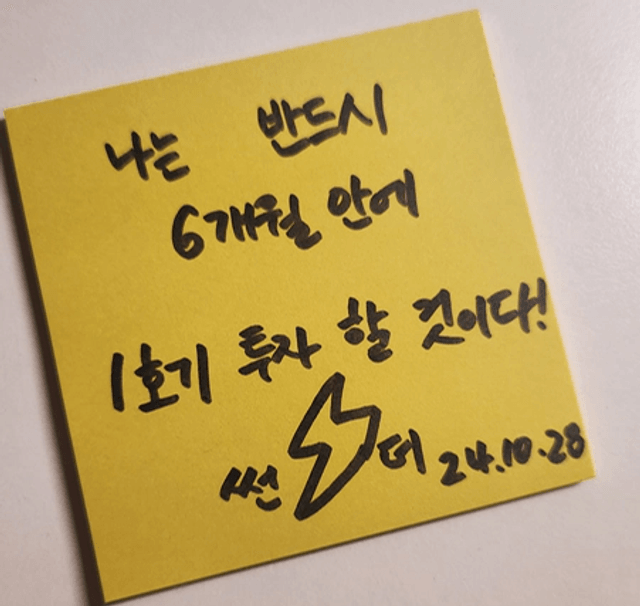 나는 반드시
6개월 안에
1호기 투자 할 것이다!
썬더 24.10.28